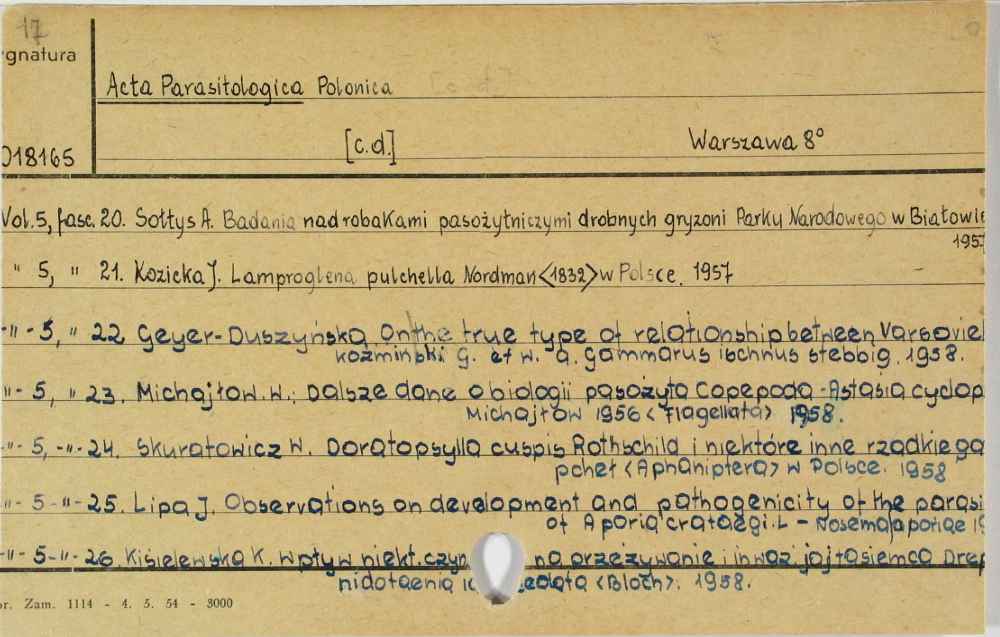 17
gnatura
Acta Parasitologica Polonica
018165
[c.d.] Warszawa 8°
Vol. 5, fasc. 20. Sołtys A. Badania nad robakami pasożytniczymi drobnych gryzoni Parku Narodowego w Białowie
1957
" 5, " 21. Kozicka J. Lamproglena pulchella Nordman <1832> w Polsce. 1957
-"- 5, " 22. Geyer-Duszyńska, On the true type of relationship between Varsovie
kozminski g. et w. a. gammarus ischnus stebbig. 1958.
"- 5, " 23. Michajłow. W.: Dalsze dane o biologii pasożyta Copepoda - Astasia cyclop
Michajłow 1956 < Flagellata> 1958.
"- 5, -"- 24. Skuratowicz W. Doratopsylla cuspis Rothschild i niektóre inne rzadkie ga
pcheł <Aphaniptera> w Polsce. 1958
"- 5 -"- 25. Lipa J. Observations on development and pathogenicity of the parasi
of Aporia crataegi. L - Nosema aporiae 19
-"- 5-"- 26. Kisielewska K. Wpływ niekt. czyn na przeżywanie i inwaz. jaj tasiemca Drep
nidotaenia <Bloch>. 1958.
or. Zam. 1114 - 4. 5. 54 - 3000